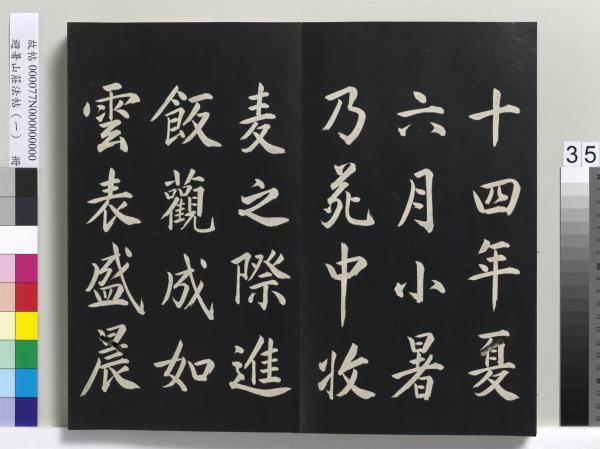 十四年夏
六月小暑
乃苑中收
麦之際進
飯觀成如
雲表盛晨
故帖 000077N000000000
避暑山莊法帖（一） 冊
35